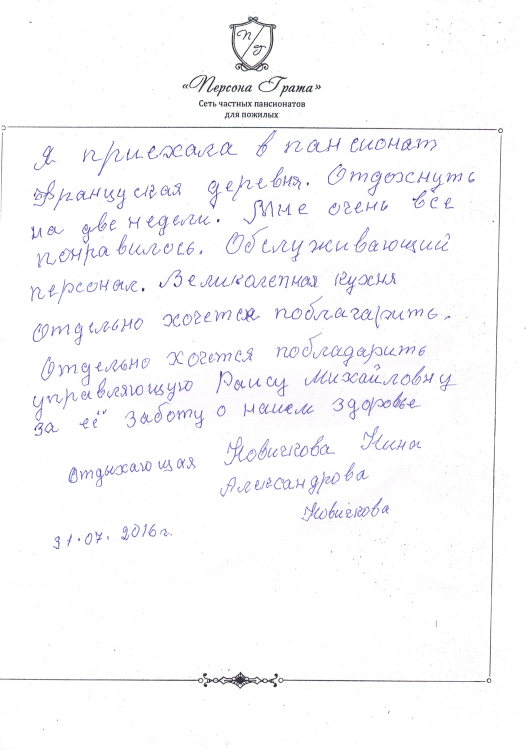 П
Г
«Персона Грата»
Сеть частных пансионатов
для пожилых
Я приехала в пансионат
Французская деревня. Отдохнуть
на две недели. Мне очень все
понравилось. Обслуживающий
персонал. Великалепная кухня
Отдельно хочется поблагарить.
Отдельно хочется побладарить
управляющую Раису Михайловну
за её заботу о нашем здоровье
Отдыхающая Новичкова Нина
Александрова
Новичкова
31.07.2016г.